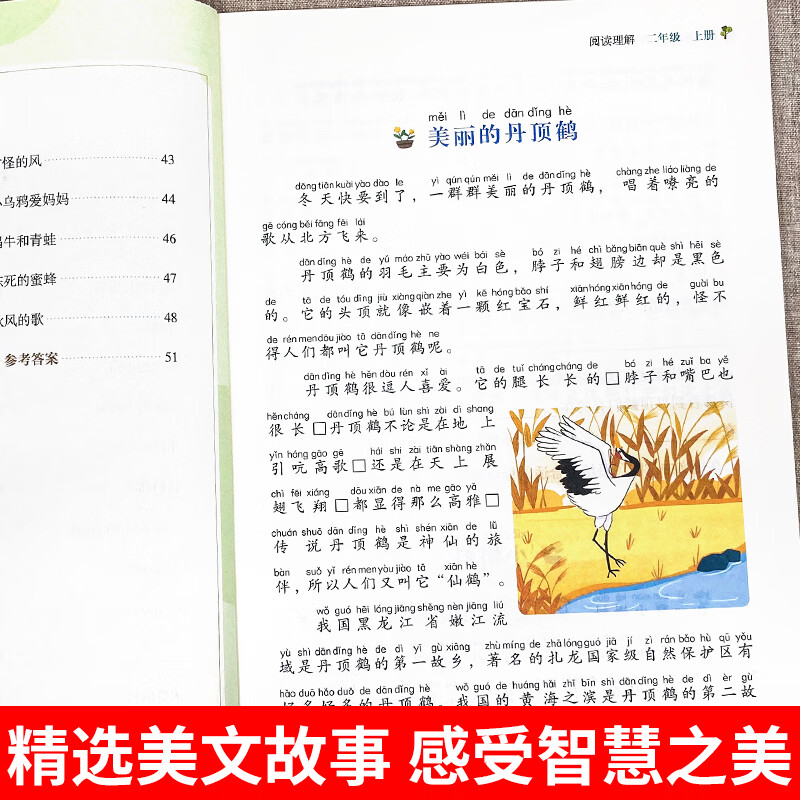 怪的风 43
乌鸦爱妈妈 44
牛和青蛙 46
死的蜜蜂 47
风的歌 48
参考答案 51
阅读理解 二年级 上册
měi lì de dān dǐng hè
美丽的丹顶鹤
dōng tiān kuài yào dào le yì qún qún měi lì de dān dǐng hè chàng zhe liáo liàng de
冬天快要到了，一群群美丽的丹顶鹤，唱着嘹亮的
gē cóng běi fāng fēi lái
歌从北方飞来。
dān dǐng hè de yǔ máo zhǔ yào wéi bái sè bó zi hé chì bǎng biān què shì hēi sè
丹顶鹤的羽毛主要为白色，脖子和翅膀边却是黑色
de tā de tóu dǐng jiù xiàng qiàn zhe yì kē hóng bǎo shí xiān hóng xiān hóng de guài bu
的。它的头顶就像嵌着一颗红宝石，鲜红鲜红的，怪不
de rén men dōu jiào tā dān dǐng hè ne
得人们都叫它丹顶鹤呢。
dān dǐng hè hěn dòu rén xǐ ài tā de tuǐ cháng cháng de bó zi hé zuǐ ba yě
丹顶鹤很逗人喜爱。它的腿长长的□脖子和嘴巴也
hěn cháng dān dǐng hè bú lùn shì zài dì shang
很长□丹顶鹤不论是在地上
yǐn háng gāo gē hái shi zài tiān shàng zhǎn
引吭高歌□还是在天上展
chì fēi xiáng dōu xiǎn de nà me gāo yǎ
翅飞翔□都显得那么高雅□
chuán shuō dān dǐng hè shì shén xiān de lǚ
传说丹顶鹤是神仙的旅
bàn suǒ yǐ rén men yòu jiào tā xiān hè
伴，所以人们又叫它“仙鹤”。
wǒ guó hēi lóng jiāng shěng nèn jiāng liú
我国黑龙江省嫩江流
yù shì dān dǐng hè de dì yī gù xiāng zhù míng de zhā lóng guó jiā jí zì rán bǎo hù qū yǒu
域是丹顶鹤的第一故乡，著名的扎龙国家级自然保护区有
hǎo duō hǎo duō de dān dǐng hè wǒ guó de huáng hǎi zhī bīn shì dān dǐng hè de dì èr gù
好多好多的丹顶鹤。我国的黄海之滨是丹顶鹤的第二故
精选美文故事 感受智慧之美